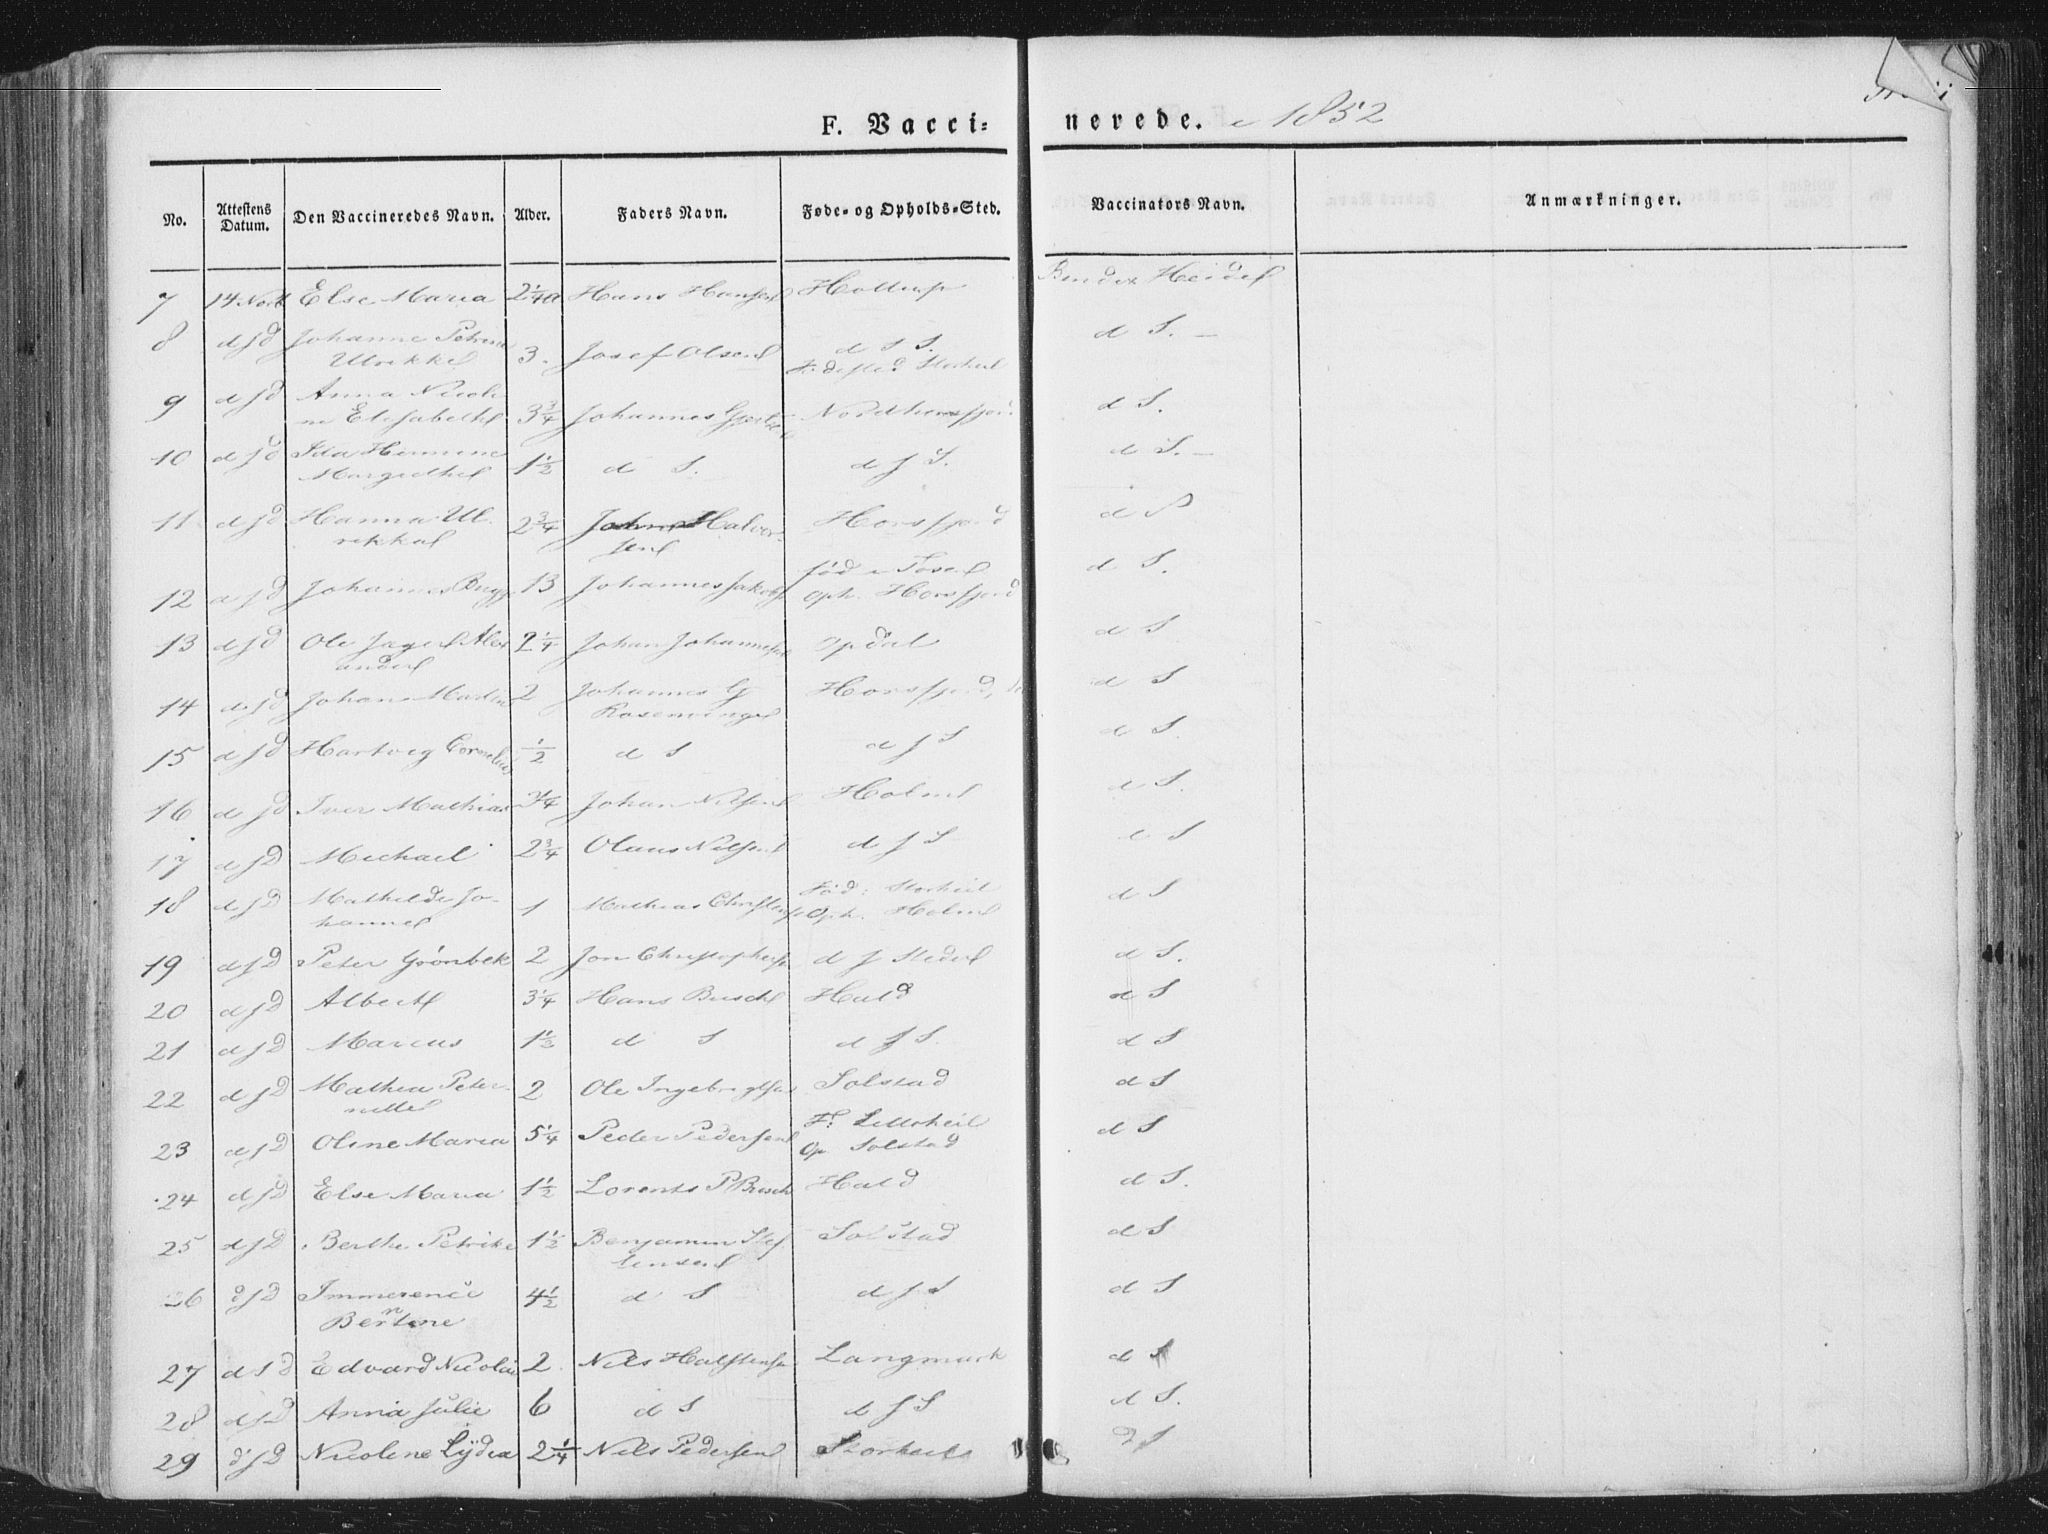 F. Vacci= nerede. 1852
No. Attestens Datum. Den Vaccineredes Navn. Alder. Faders Navn. Føde- og Opholds-Sted. Vaccinators Navn. Anmærkninger.
7 14 Else Maria 2 1/4 Hans Hansen Holtrup Heidel
8 d s d Johanne Petrine Ulrikke 3. Josef Olsen d s S. d S. -
9 d s d Anna Nicoli
ne Elisabeth 3 3/4 Johannes d S.
10 d s d Ida
Margrethe 1 1/2 d S. d s S. d S. -
11 d s d Hanna Ul-
rikka 2 3/4 Halvor-
sen Horsfjord d S
12 d s d Johannes 13 Johannes fød i
Oph. Horsfjord d S.
13 d s d Ole Jager Alex
ander 2 1/4 Johan Johannesen Opdal d S
14 d s d Johan Martin 2 Johannes G
Rosenvinge Horsfjord, d S
15 d s d Hartvig Cornelius 1/2 d S d s S d S.
16 d s d Iver Mathias 3/4 Johan Nilsen Holm d S.
17 d s d Michael 2 3/4 Olaus Nilsen d s S d S
18 d s d Mathilde Jo-
hanne 1 Mathias Fød: Storheil
Oph. Holm d S
19 d s d Peter Grönbek 2 Jon Christophersen d s Sted d S.
20 d s d Albert 3 1/4 Hans Busch Hald d S
21 d s d Marcus 1 1/2 d S d s S. d S
22 d s d Mathea Peter-
nille 2 Ole Ingebrigtsen Solstad d S
23 d s d Oline Maria 5 1/4 Peder Pedersen F:
Op Solstad d S
24 d s d Else Maria 1 1/2 Lorents P Busch Hald d S.
25 d s d Berthe Petrike 1 1/2 Benjamin Stef
fensen Solstad d S
26 d s d Immerence
Bertine 4 1/2 d S d s S d S
27 d s d Edvard Nicolai 2. Nils Halstensen Langmark d S
28 d s d Anna Julie 6 d S d s S d S.
29 d s d Nicoline Lydia 2 1/4 Nils Pedersen Storheil d S